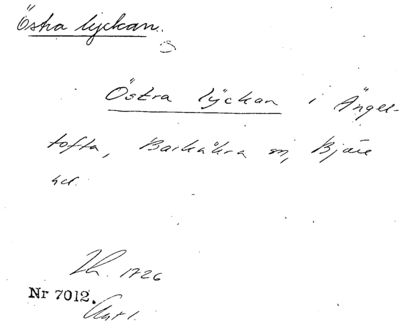 Östra lyckan.
Östra lyckan i Ängel-
tofta, Barkåkra sn, Bjäre
hd.
1726
Nr 7012.